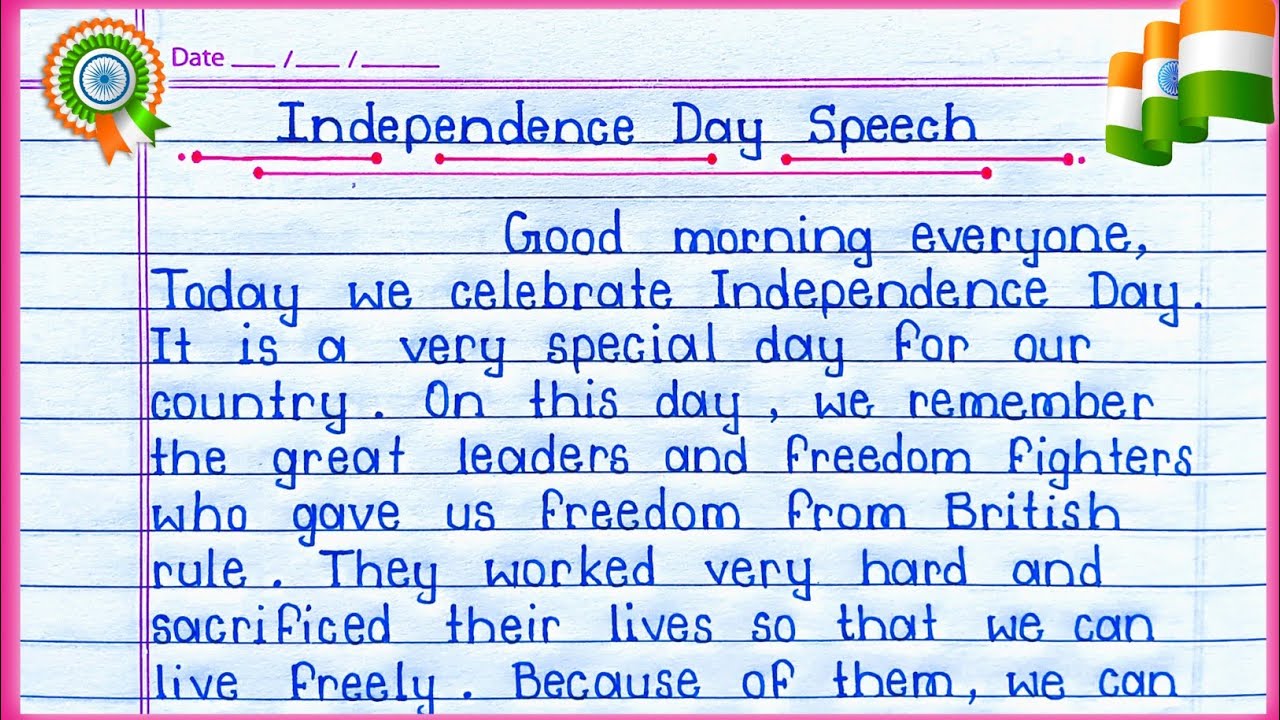 Date ___ /___ / ______
Independence Day Speech
Good morning everyone,
Today we celebrate Independence Day.
It is a very special day for our
country. On this day, we remember
the great leaders and freedom fighters
who gave us freedom from British
rule. They worked very hard and
sacrificed their lives so that we can
live freely. Because of them, we can